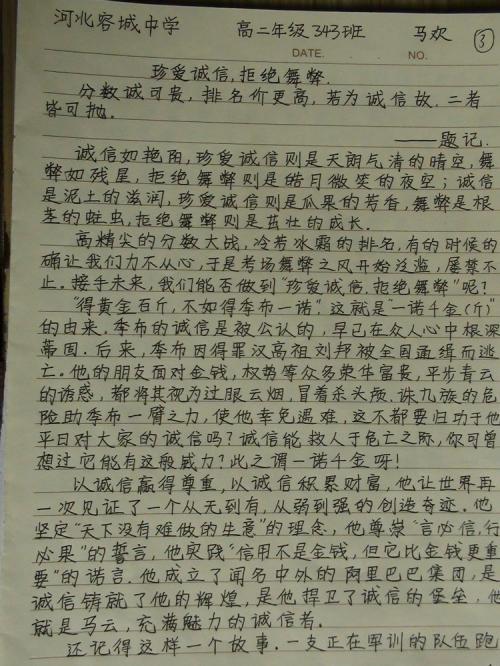 河北容城中学 高二年级343班 马欢 ③
DATE. NO.
珍爱诚信,拒绝舞弊.
分数诚可贵,排名价更高,若为诚信故.二者
皆可抛.
——题记.
诚信如艳阳,珍爱诚信则是天朗气清的晴空,舞
弊如残星,拒绝舞弊则是皓月微笑的夜空;诚信
是泥土的滋润,珍爱诚信则是瓜果的芳香,舞弊是根
茎的蛀虫,拒绝舞弊则是茁壮的成长.
高精尖的分数大战,冷若冰霜的排名,有的时候的
确让我们力不从心,于是考场舞弊之风开始泛滥,屡禁不
止.接手未来,我们能否做到“珍爱诚信.拒绝舞弊”呢?
“得黄金百斤,不如得季布一诺”.这就是“一诺千金(斤)”
的由来.季布的诚信是被公认的,早已在众人心中根深
蒂固.后来,季布因得罪汉高祖刘邦被全国通缉而逃
亡.他的朋友面对金钱,权势等众多荣华富贵,平步青云
的诱惑,都将其视为过眼云烟,冒着杀头颅.诛九族的危
险助季布一臂之力,使他幸免遇难,这不都要归功于他
平日对大家的诚信吗?诚信能救人于危亡之际,你可曾
想过它能有这般威力?此之谓一诺千金呀!
以诚信赢得尊重,以诚信积累财富,他让世界再
一次见证了一个从无到有,从弱到强的创造奇迹.他
坚定“天下没有难做的生意”的理念,他尊崇“言必信,行
必果”的誓言,他实践“信用不是金钱,但它比金钱更重
要”的诺言.他成立了闻名中外的阿里巴巴集团,是
诚信铸就了他的辉煌,是他捍卫了诚信的堡垒,他
就是马云,充满魅力的诚信者.
还记得这样一个故事.一支正在军训的队伍跑